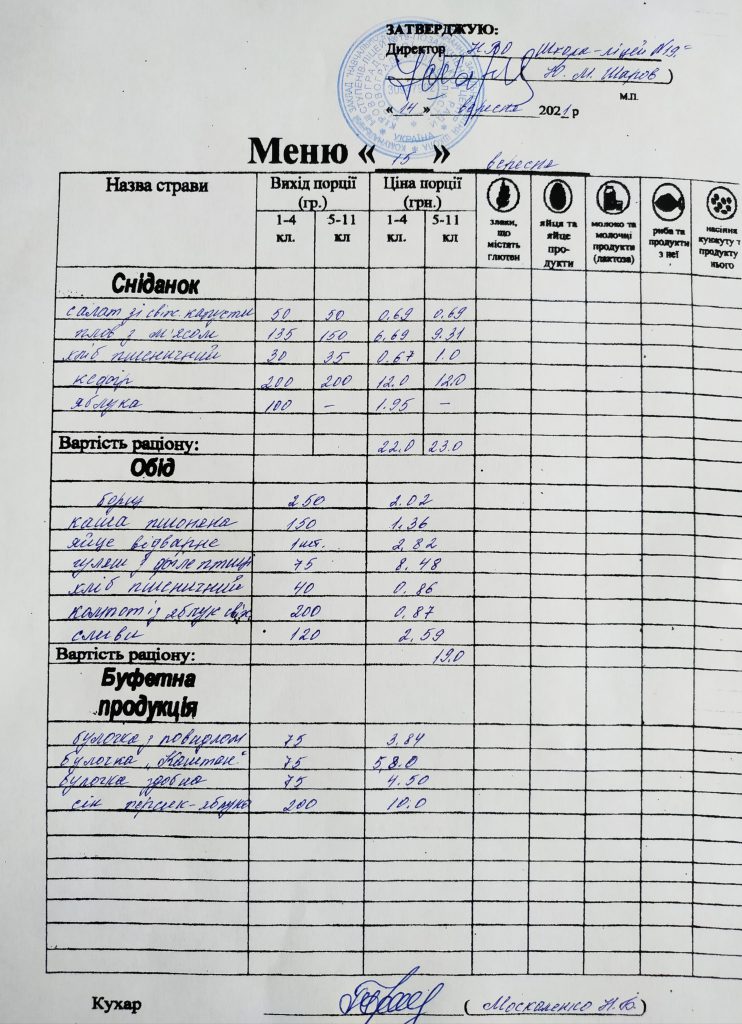 ЗАТВЕРДЖУЮ:
Директор НВО Школа-ліцей №19"
( Ю. М. Шаров )
м.п.
« 14 » вересня 2021 р
Меню « 15 » вересня
Назва страви Вихід порції (гр.) Ціна порції (грн.)
1-4 кл. 5-11 кл 1-4 кл. 5-11 кл
злаки, що містять глютен
яйця та яйце про-дукти
молоко та молочні продукти (лактоза)
риба та продукти з неї
насіння кунжуту т продукту нього
Сніданок
салат зі свіж. капусти 50 50 0.69 0.69
плов з м'ясом 135 150 6.69 9.31
хліб пшеничний 30 35 0.67 1.0
кефір 200 200 12.0 12.0
яблука 100 – 1.95 –
Вартість раціону: 22.0 23.0
Обід
борщ 250 2.02
каша пшоняна 150 1.36
яйце відварне 1 шт. 2,82
гуляш з філе птиці 75 8,48
хліб пшеничний 40 0,86
компот із яблук свіж. 200 0,87
сливи 120 2,59
Вартість раціону: 19.0
Буфетна
продукція
булочка з повидлом 75 3.84
булочка „Каштан" 75 5,8.0
булочка здобна 75 4.50
сік персик-яблуко 200 10.0
Кухар ( Москаленко Н.В. )